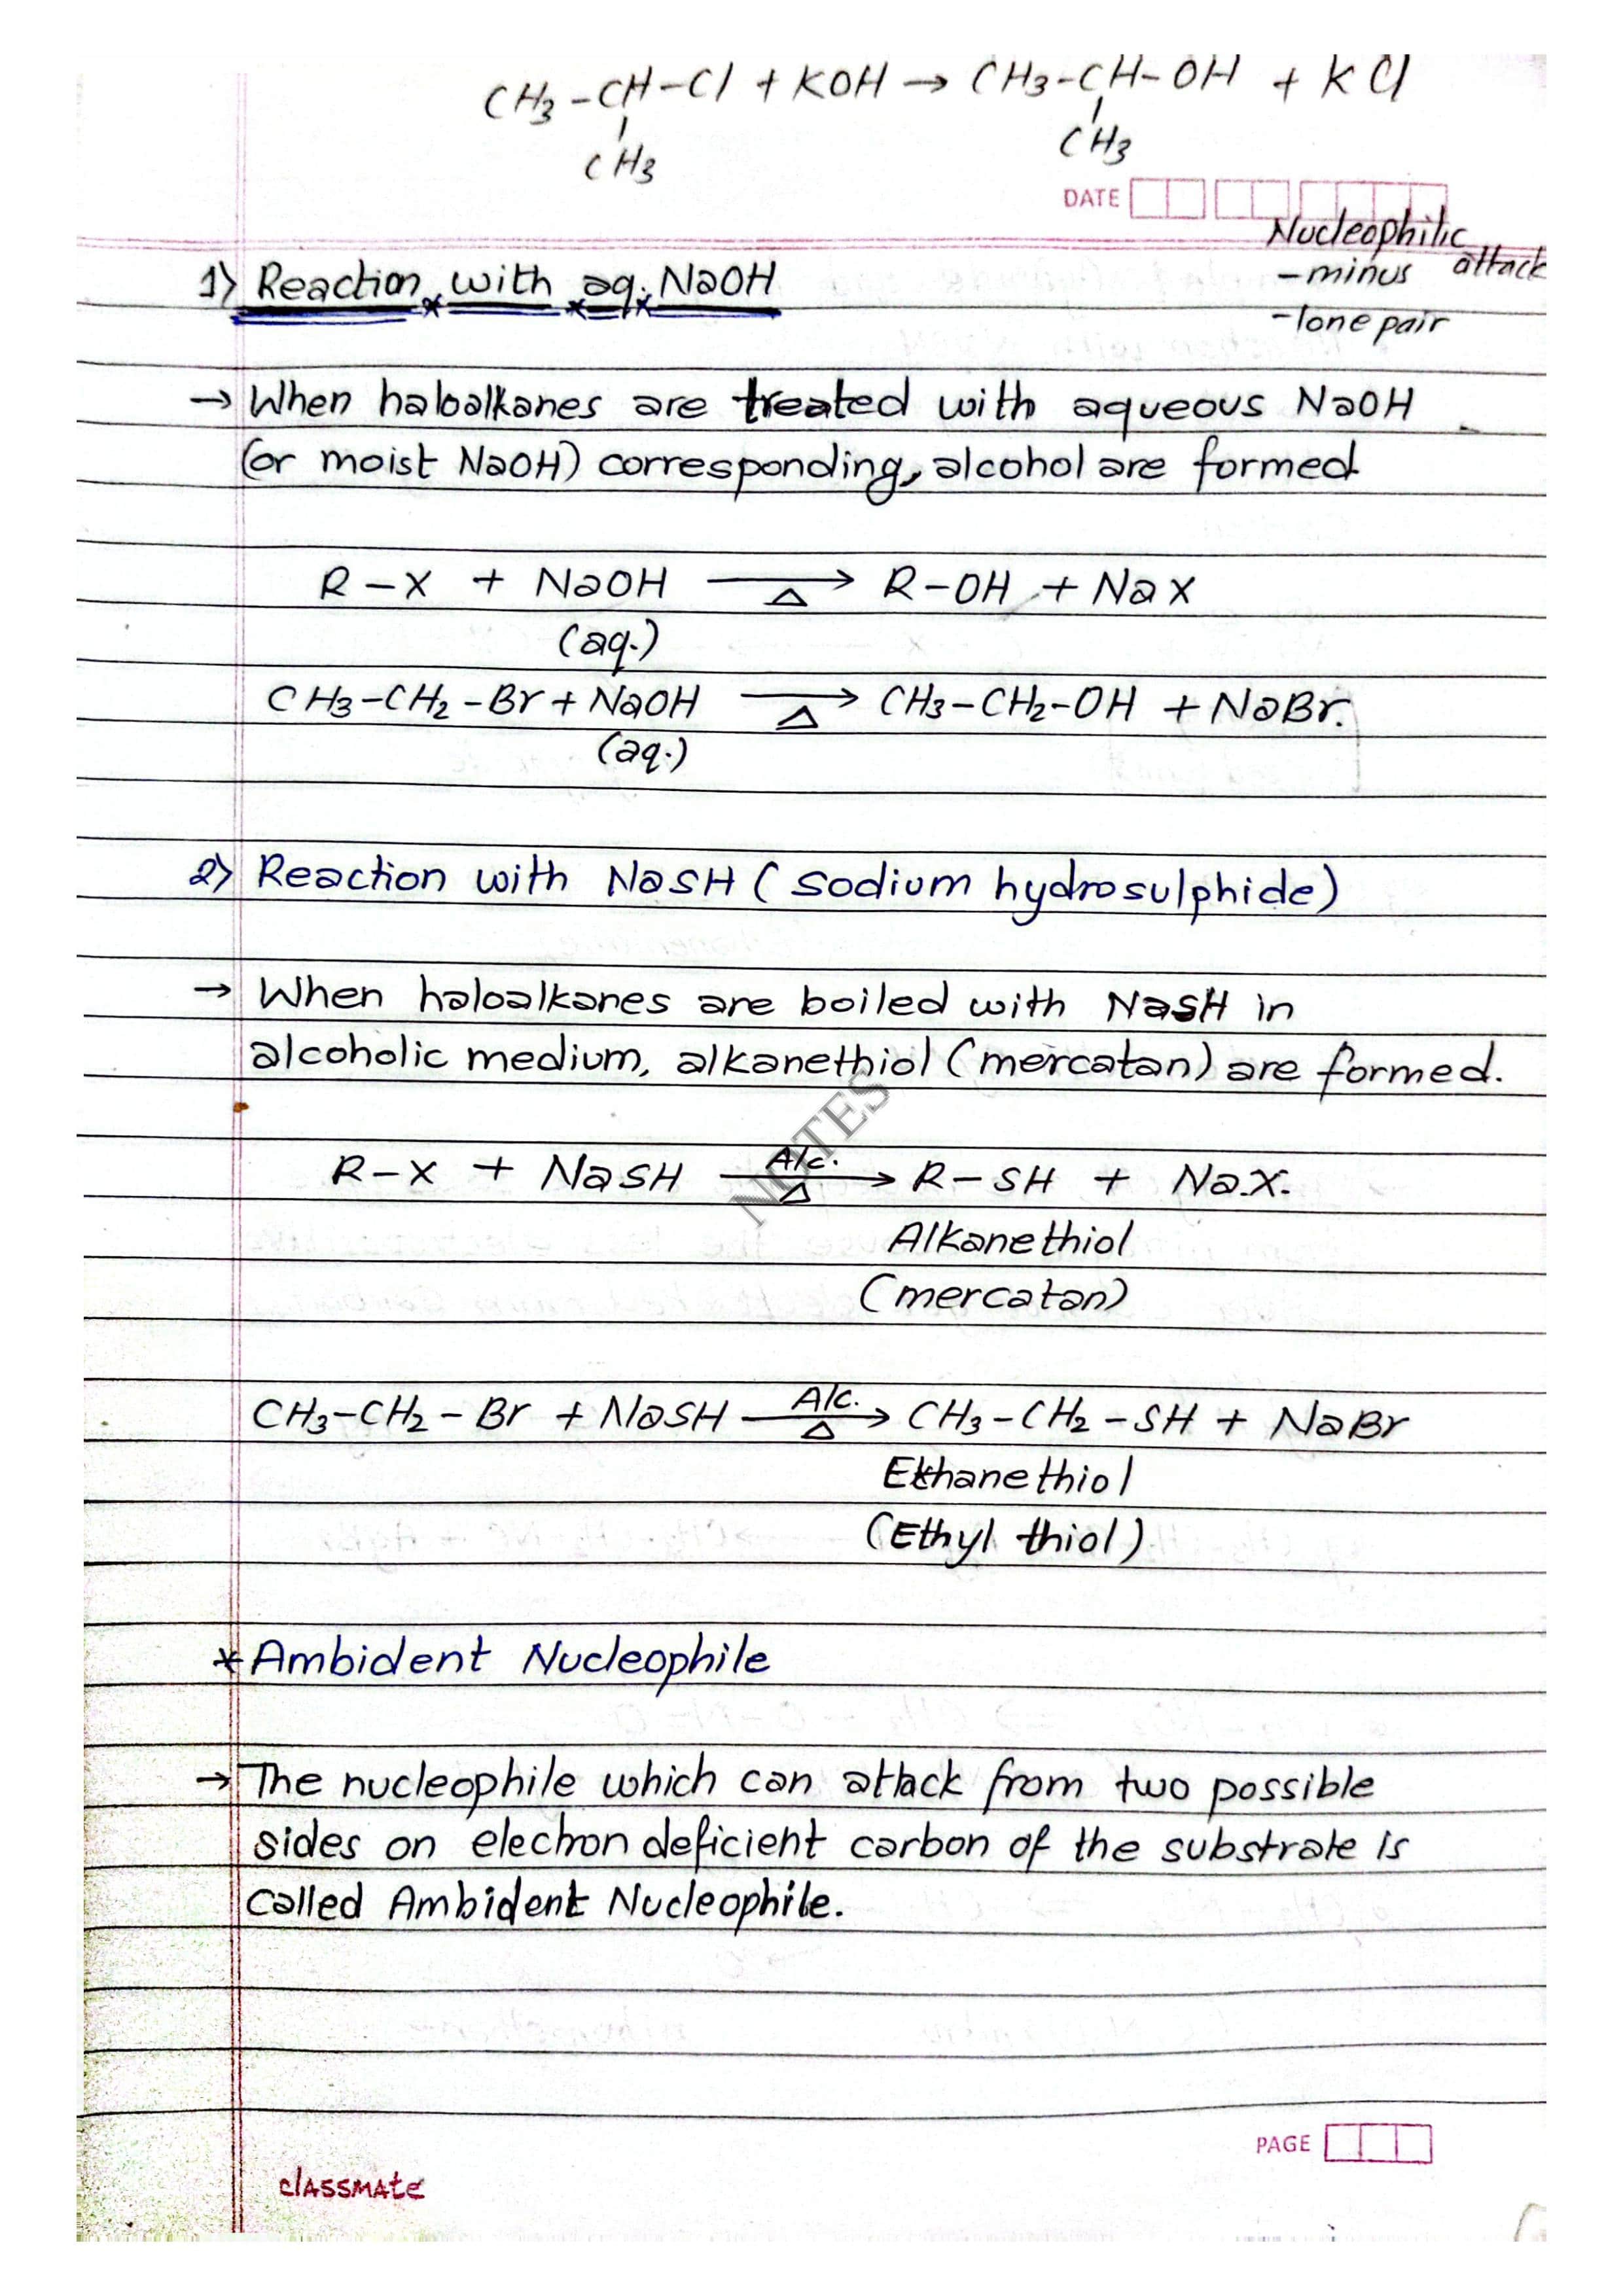 CH3-CH-Cl + KOH → CH3-CH-OH + KCl
CH3 CH3
DATE
Nucleophilic
attack
-minus
-lone pair
1) Reaction with aq. NaOH
→ When haloalkanes are treated with aqueous NaOH
(or moist NaOH) corresponding, alcohol are formed
R-X + NaOH →Δ R-OH + NaX
(aq.)
CH3-CH2-Br + NaOH →Δ CH3-CH2-OH + NaBr.
(aq.)
2) Reaction with NaSH (sodium hydrosulphide)
→ When haloalkanes are boiled with NaSH in
alcoholic medium, alkanethiol (mercatan) are formed.
NOTES
R-X + NaSH Alc.→Δ R-SH + Na.X.
Alkanethiol
(mercatan)
CH3-CH2-Br + NaSH Alc.→Δ CH3-CH2-SH + NaBr
Ethanethiol
(Ethyl thiol)
* Ambident Nucleophile
→ The nucleophile which can attack from two possible
sides on electron deficient carbon of the substrate is
called Ambident Nucleophile.
PAGE
classmate